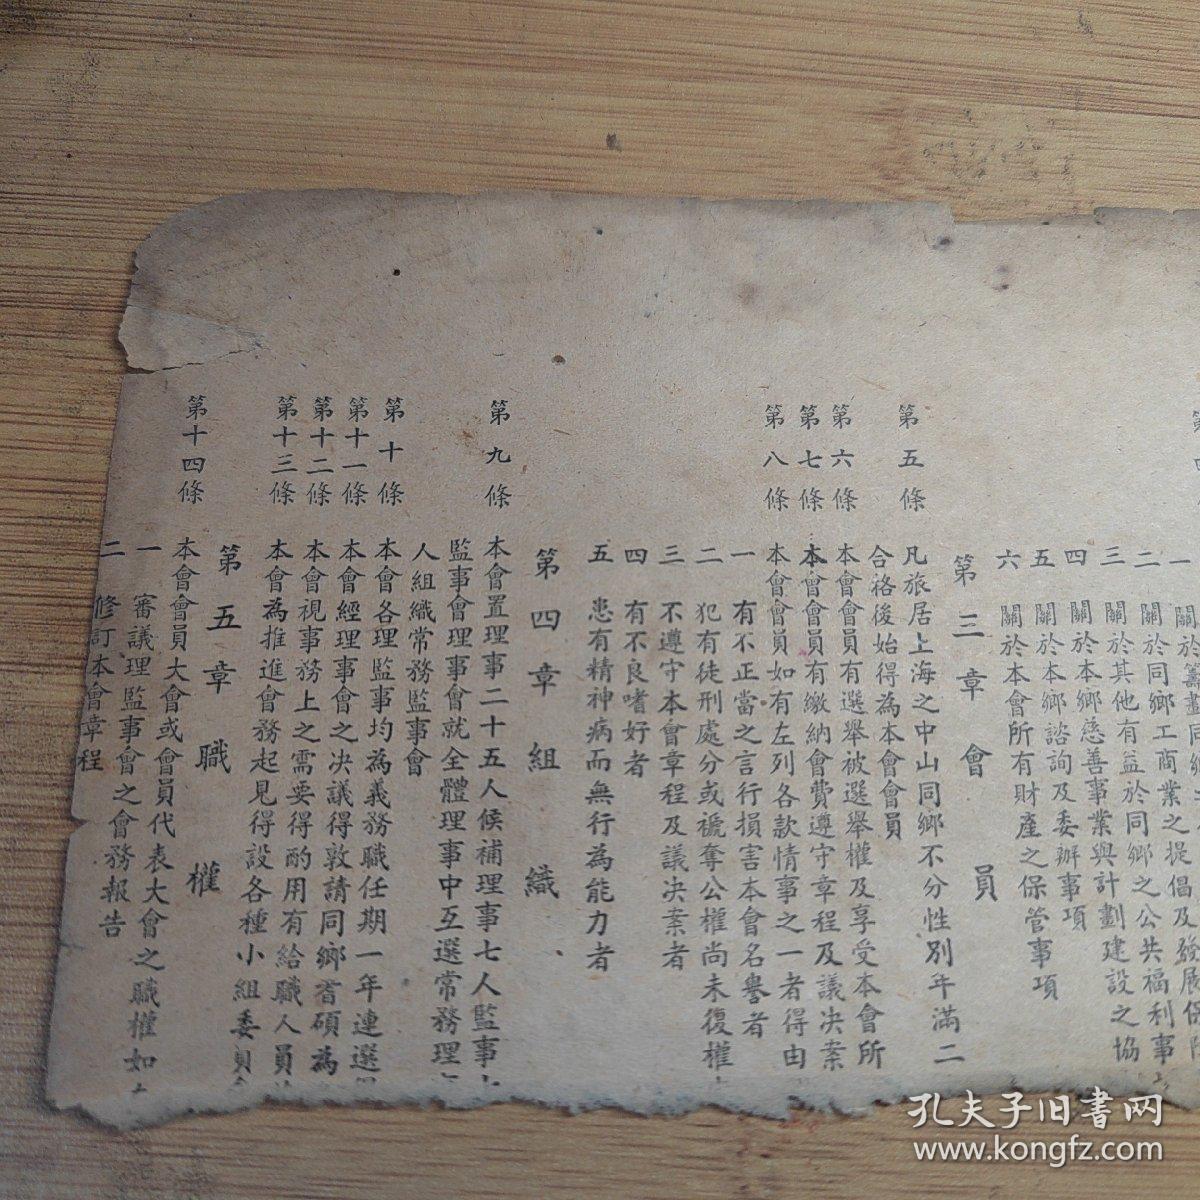 關於籌劃同鄉
二 關於同鄉工商業之提倡及發展保
三 關於其他有益於同鄉之公共福利事
四 關於本鄉慈善事業與計劃建設之協
五 關於本鄉諮詢及委辦事項
六 關於本會所有財產之保管事項
第三章 會員
第五條 凡旅居上海之中山同鄉不分性別年滿二
合格後始得為本會會員
第六條 本會會員有選舉被選舉權及享受本會所
第七條 本會會員有繳納會費遵守章程及議決案
第八條 本會會員如有左列各款情事之一者得由
一 有不正當之言行損害本會名譽者
二 犯有徒刑處分或褫奪公權尚未復權
三 不遵守本會章程及議決案者
四 有不良嗜好者
五 患有精神病而無行為能力者
第四章 組織
第九條 本會置理事二十五人候補理事七人監事
監事會理事會就全體理事中互選常務理
人組織常務監事會
第十條 本會各理監事均為義務職任期一年連選
第十一條 本會經理事會之決議得敦請同鄉耆碩為
第十二條 本會視事務上之需要得酌用有給職人員
第十三條 本會為推進會務起見得設各種小組委員
第五章 職權
第十四條 本會會員大會或會員代表大會之職權如
一 審議理監事會之會務報告
二 修訂本會章程
孔夫子旧書网
www.kongfz.com